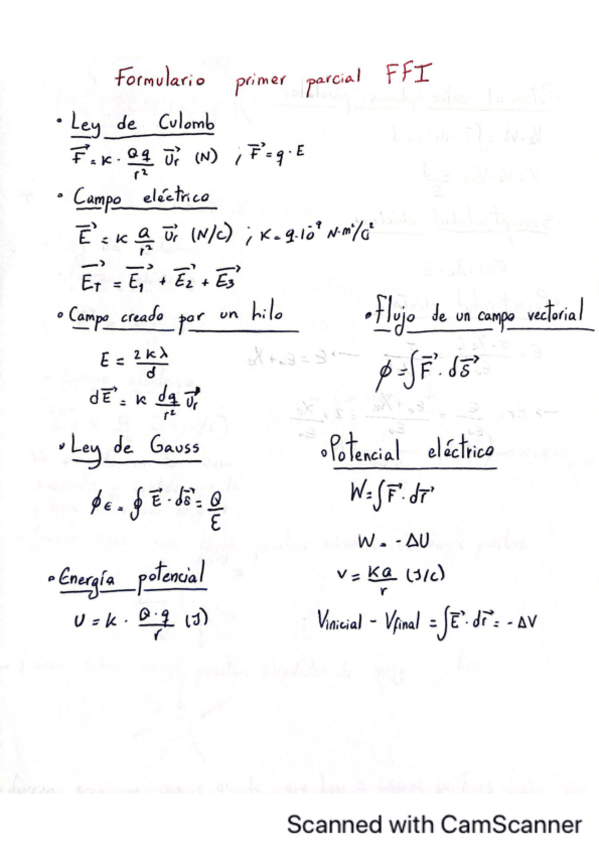 Formulario primer parcial FFI
• Ley de Culomb
F⃗ = K · Qq/r² u⃗r (N) ; F⃗ = q · E
• Campo eléctrico
E⃗ = K Q/r² u⃗r (N/C) ; K = 9·10⁹ N·m²/C²
E⃗T = E⃗1 + E⃗2 + E⃗3
• Campo creado por un hilo
E = 2kλ/d
dE⃗ = K dq/r² u⃗r
• Flujo de un campo vectorial
ϕ = ∫ F⃗ · ds⃗
• Ley de Gauss
ϕE = ∮ E⃗ · ds⃗ = Q/ε
• Potencial eléctrico
W = ∫ F⃗ · dr⃗
W = -ΔU
V = KQ/r (J/C)
Vinicial - Vfinal = ∫ E⃗ · dr⃗ = -ΔV
• Energía potencial
U = k · Q·q/r (J)
Scanned with CamScanner